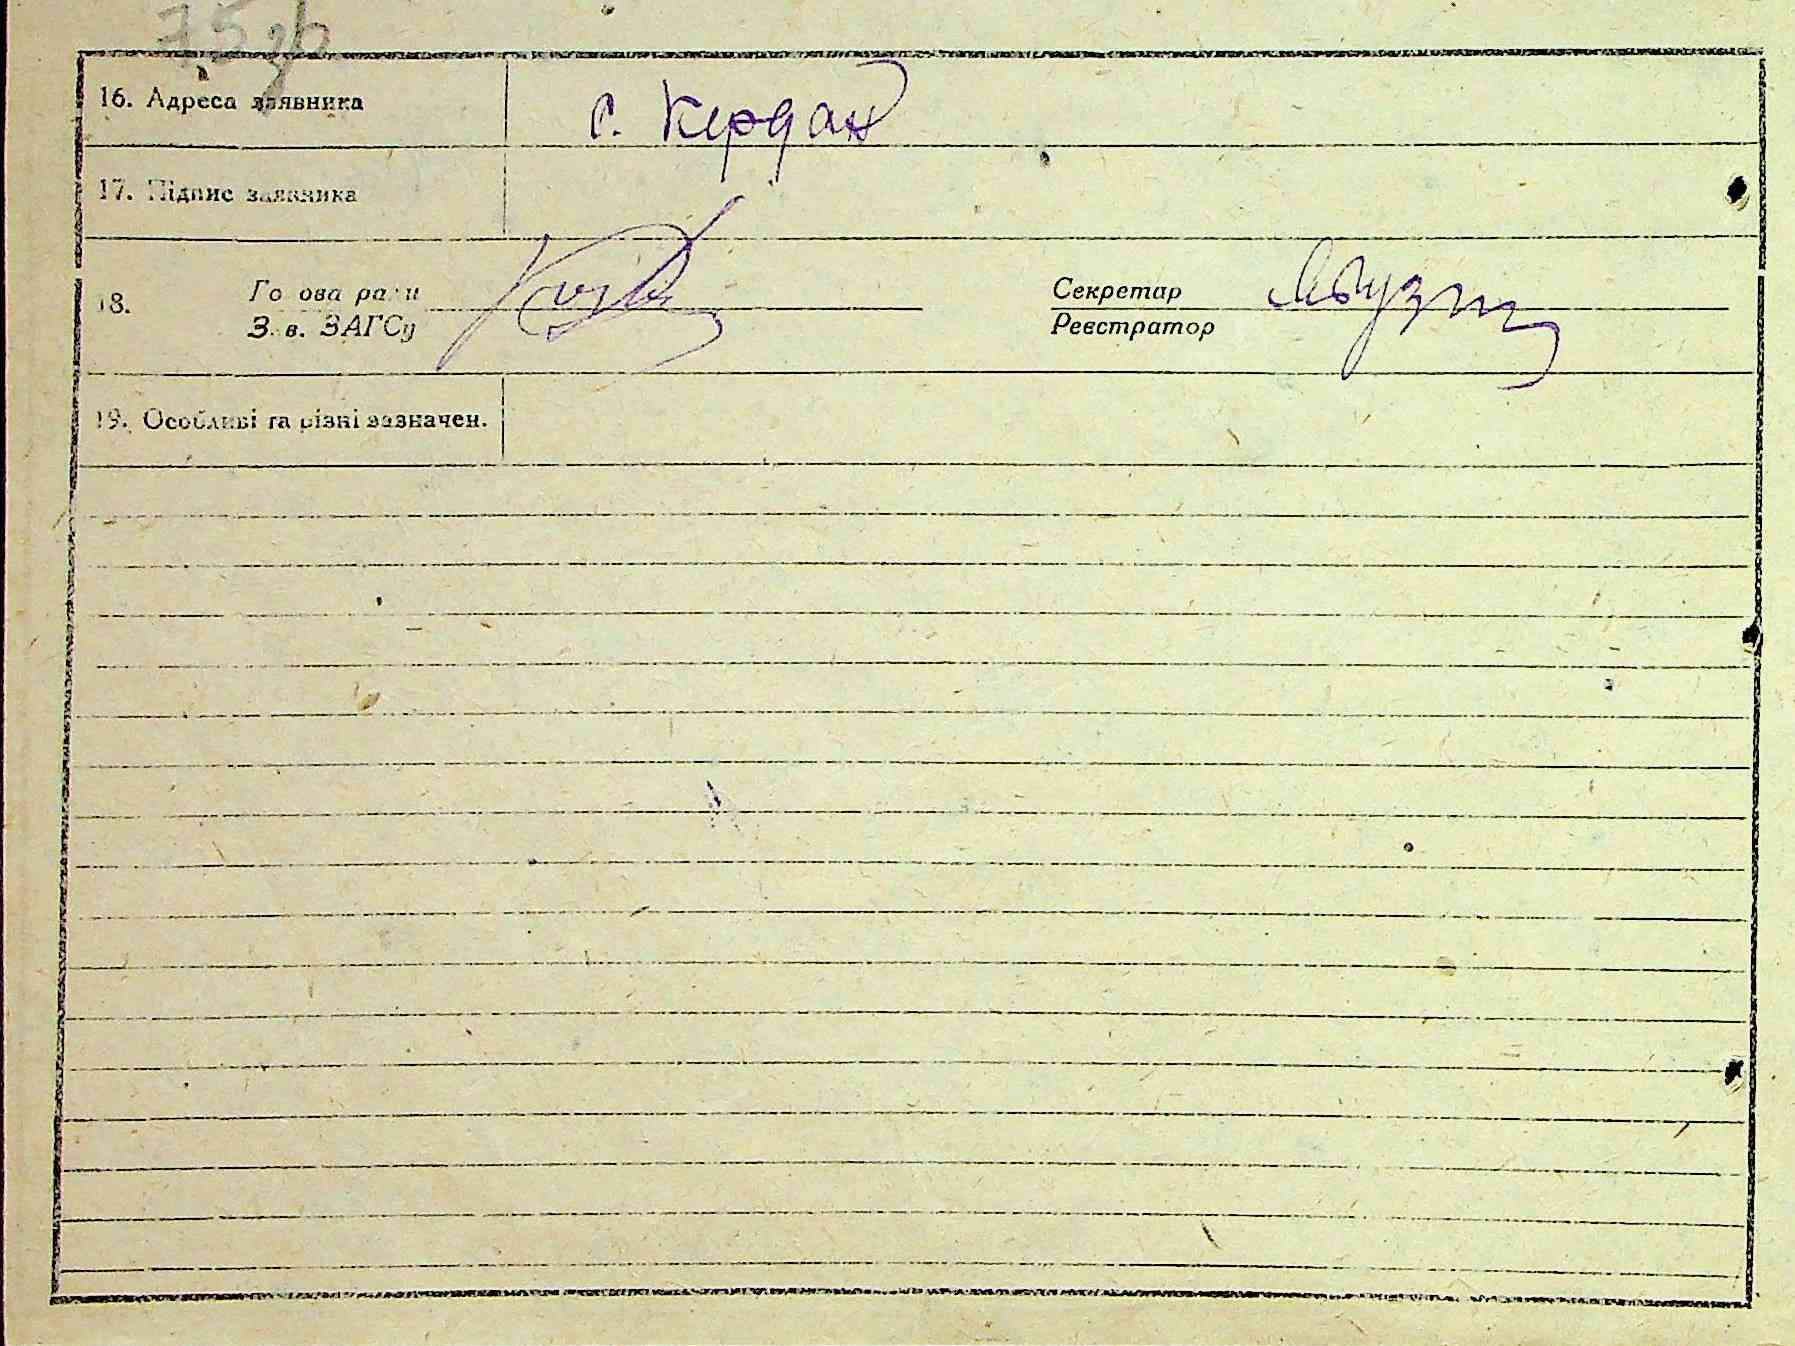 75 зв
16. Адреса заявника с. Кердан
17. Підпис заявника
18. Голова ради Секретар
Зав. ЗАГСу Реєстратор
19. Особливі та різні зазначен.